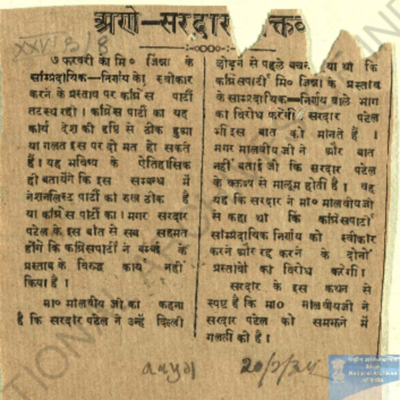 XXVI 3/8
अणे—सरदार
७ फरवरी को मि० जिन्ना के
साम्प्रदायिक—निर्णय को स्वीकार
करने के प्रस्ताव पर कांग्रेस पार्टी
तटस्थ रही। कांग्रेस पार्टी का यह
कार्य देश की दृष्टि से ठीक हुआ
या गलत इस पर दो मत हो सकते
हैं। यह भविष्य के ऐतिहासिक
ही बतायेंगे कि इस सम्बन्ध में
नेशनलिस्ट पार्टी का रुख ठीक है
या कांग्रेस पार्टी का। मगर सरदार
पटेल के इस बात से सब सहमत
होंगे कि कांग्रेसपार्टी ने बम्बई के
प्रस्ताव के विरुद्ध कार्य नहीं
किया है।
मा० मालवीय जी का कहना
है कि सरदार पटेल ने उन्हें दिल्ली
छोड़ने से पहले बचन या था कि
कांग्रेसपार्टी मि० जिन्ना के प्रस्ताव
के साम्प्रदायिक—निर्णय वाले भाग
का विरोध करेगी। सरदार पटेल
भी इस बात को मानते हैं।
मगर मालवीय जी ने और बात
नहीं बताई जो कि सरदार पटेल
के वक्तव्य से मालूम होती है। वह
यह कि सरदार ने मा० मालवीय जी
से कहा था कि कांग्रेसपार्टी
साम्प्रदायिक निर्णय को स्वीकार
करने और रद्द करने के दोनों
प्रस्तावों का विरोध करेगी।
सरदार के इस कथन से
स्पष्ट है कि मा० मालवीयजी ने
सरदार पटेल को समझने में
गलती की है।
20/2/35
राष्ट्रीय अभिलेखागार
National Archives
of India